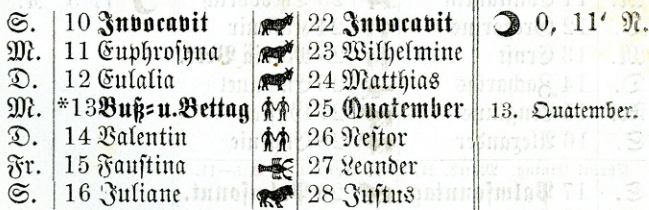 S. 10 Invocavit 22 Invocavit ☽ 0, 11' N.
M. 11 Euphrosyna 23 Wilhelmine
D. 12 Eulalia 24 Matthias
M. *13 Buß- u. Bettag 25 Quatember 13. Quatember.
D. 14 Valentin 26 Nestor
Fr. 15 Faustina 27 Leander
S. 16 Juliane 28 Justus